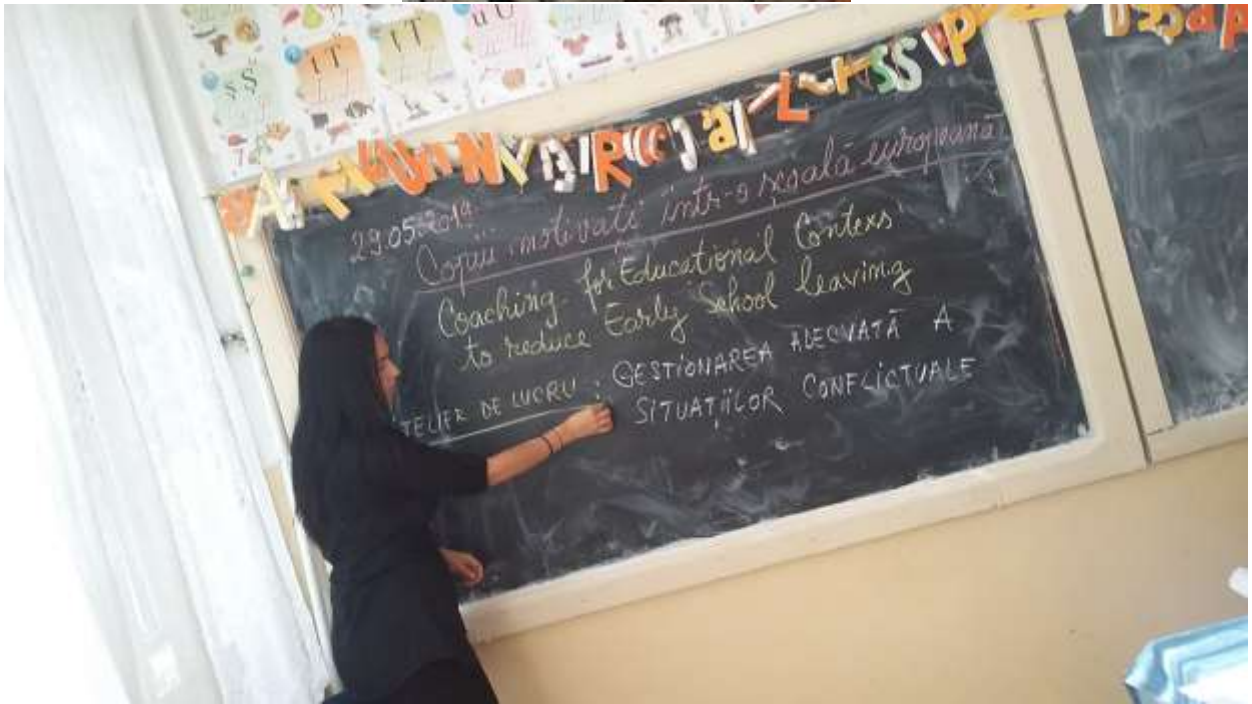 29.05.2019
Copiii motivați într-o școală europeană
Coaching for Educational Contexs
to reduce Early School leaving
TELIER DE LUCRU : GESTIONAREA ADECVATĂ A
SITUAȚIILOR CONFLICTUALE